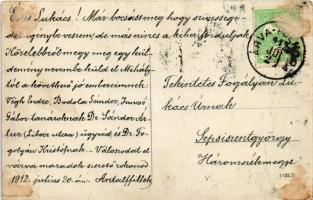 Édes Lukács! Már bocsáss meg hogy szívességedet
igénybe veszem, de más nincs a kihez forduljak.
Közelebbről megy meg egy küldemény
nevembe küld el Mihálytól
a következő jó embereimnek:
Végh Endre, Bodola Sándor,
Gábor tanároknak Dr. Sándor
(Libor utca) ügyvéd és Dr.
Kristófnak. - Válaszodat el
várva maradok szerető rokonod
1912. július 20-án.
ÁRVA
Tekintetes Fogolyán Lukács
Urnak
Sepsiszentgyörgy
Háromszékmegye